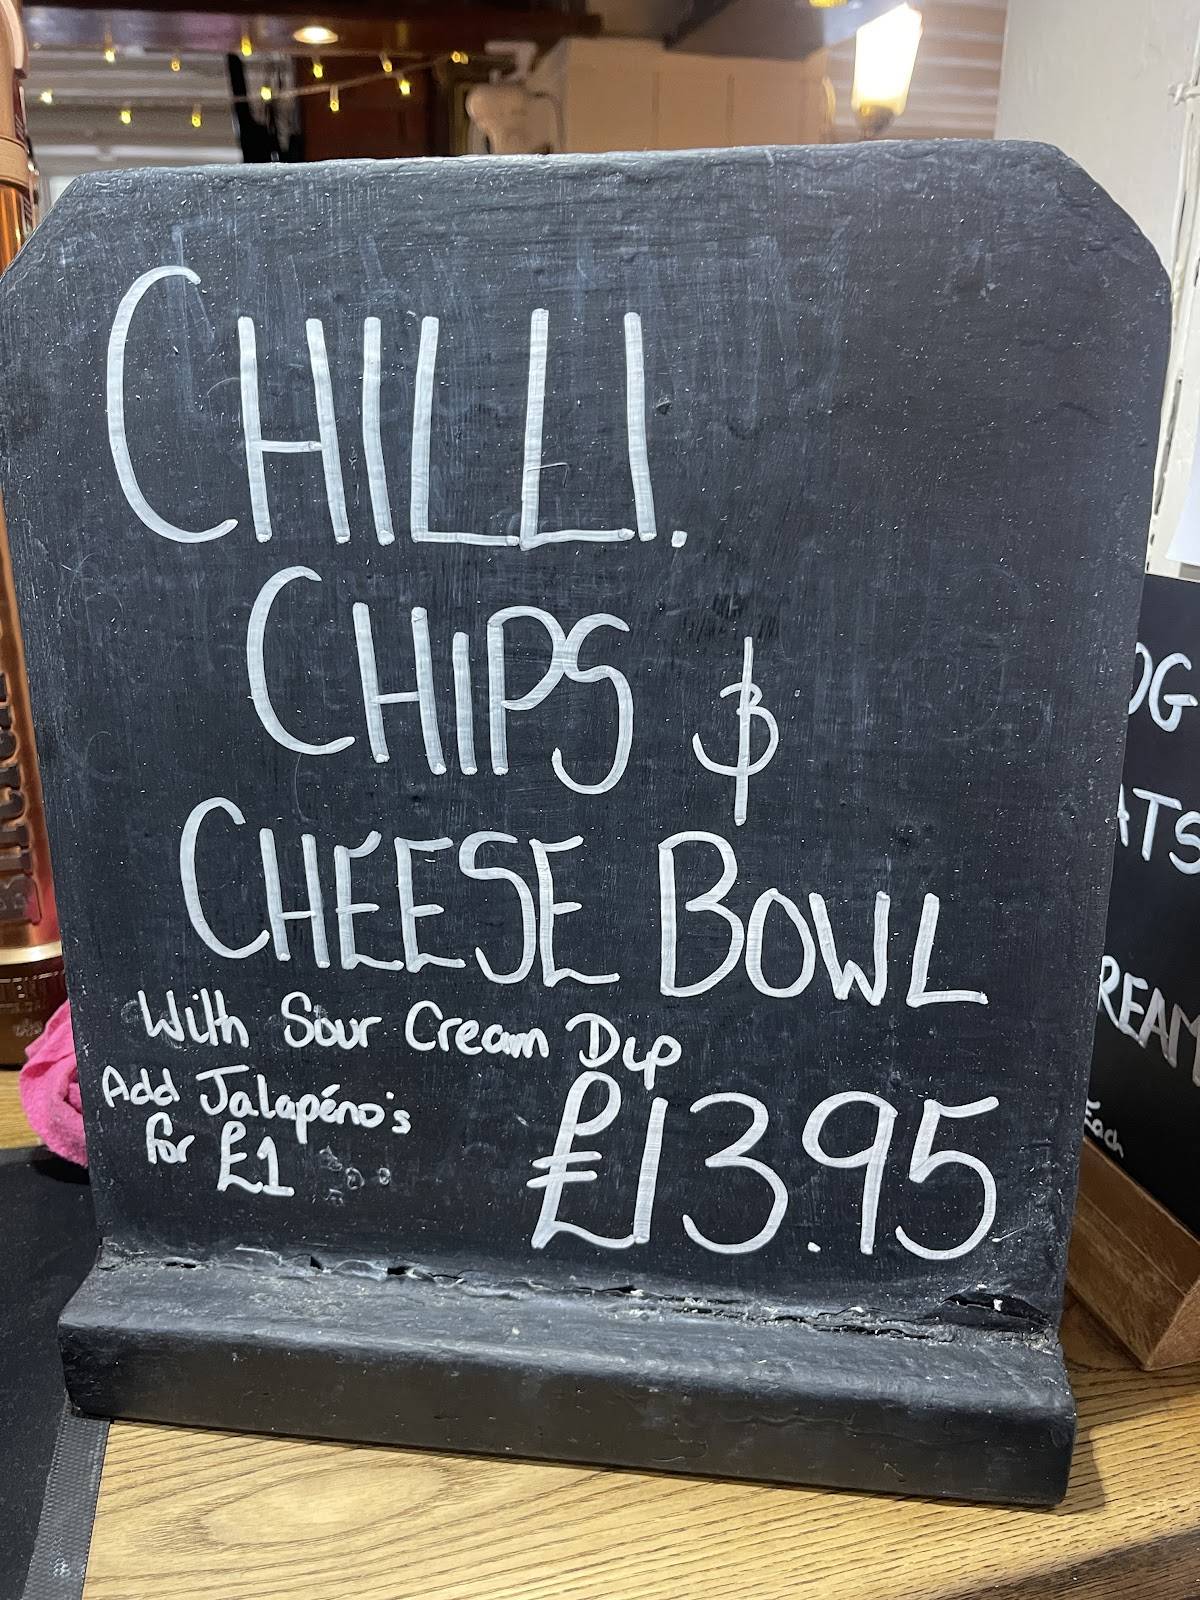 CHILLI.
CHIPS &
CHEESE BOWL
With Sour Cream Dip
Add Jalapéno's
for £1
£13.95
OG
ATS
REAM
Each